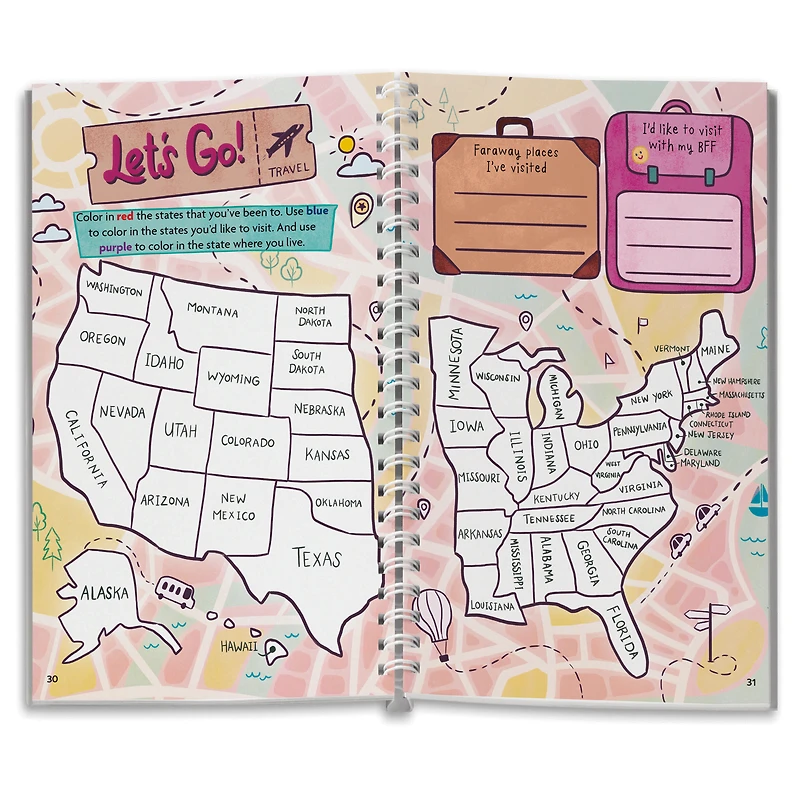 Let's Go!
TRAVEL
Color in red the states that you've been to. Use blue
to color in the states you'd like to visit. And use
purple to color in the state where you live.
WASHINGTON
MONTANA
NORTH
DAKOTA
OREGON
IDAHO
SOUTH
DAKOTA
WYOMING
NEBRASKA
NEVADA
UTAH
COLORADO
KANSAS
CALIFORNIA
ARIZONA
NEW
MEXICO
OKLAHOMA
TEXAS
ALASKA
HAWAII
30
Faraway places
I've visited
I'd like to visit
with my BFF
MINNESOTA
WISCONSIN
MICHIGAN
VERMONT
MAINE
NEW HAMPSHIRE
MASSACHUSETTS
NEW YORK
RHODE ISLAND
CONNECTICUT
NEW JERSEY
IOWA
ILLINOIS
INDIANA
OHIO
PENNSYLVANIA
DELAWARE
MARYLAND
MISSOURI
WEST
VIRGINIA
VIRGINIA
KENTUCKY
TENNESSEE
NORTH CAROLINA
ARKANSAS
MISSISSIPPI
ALABAMA
GEORGIA
SOUTH
CAROLINA
LOUISIANA
FLORIDA
31